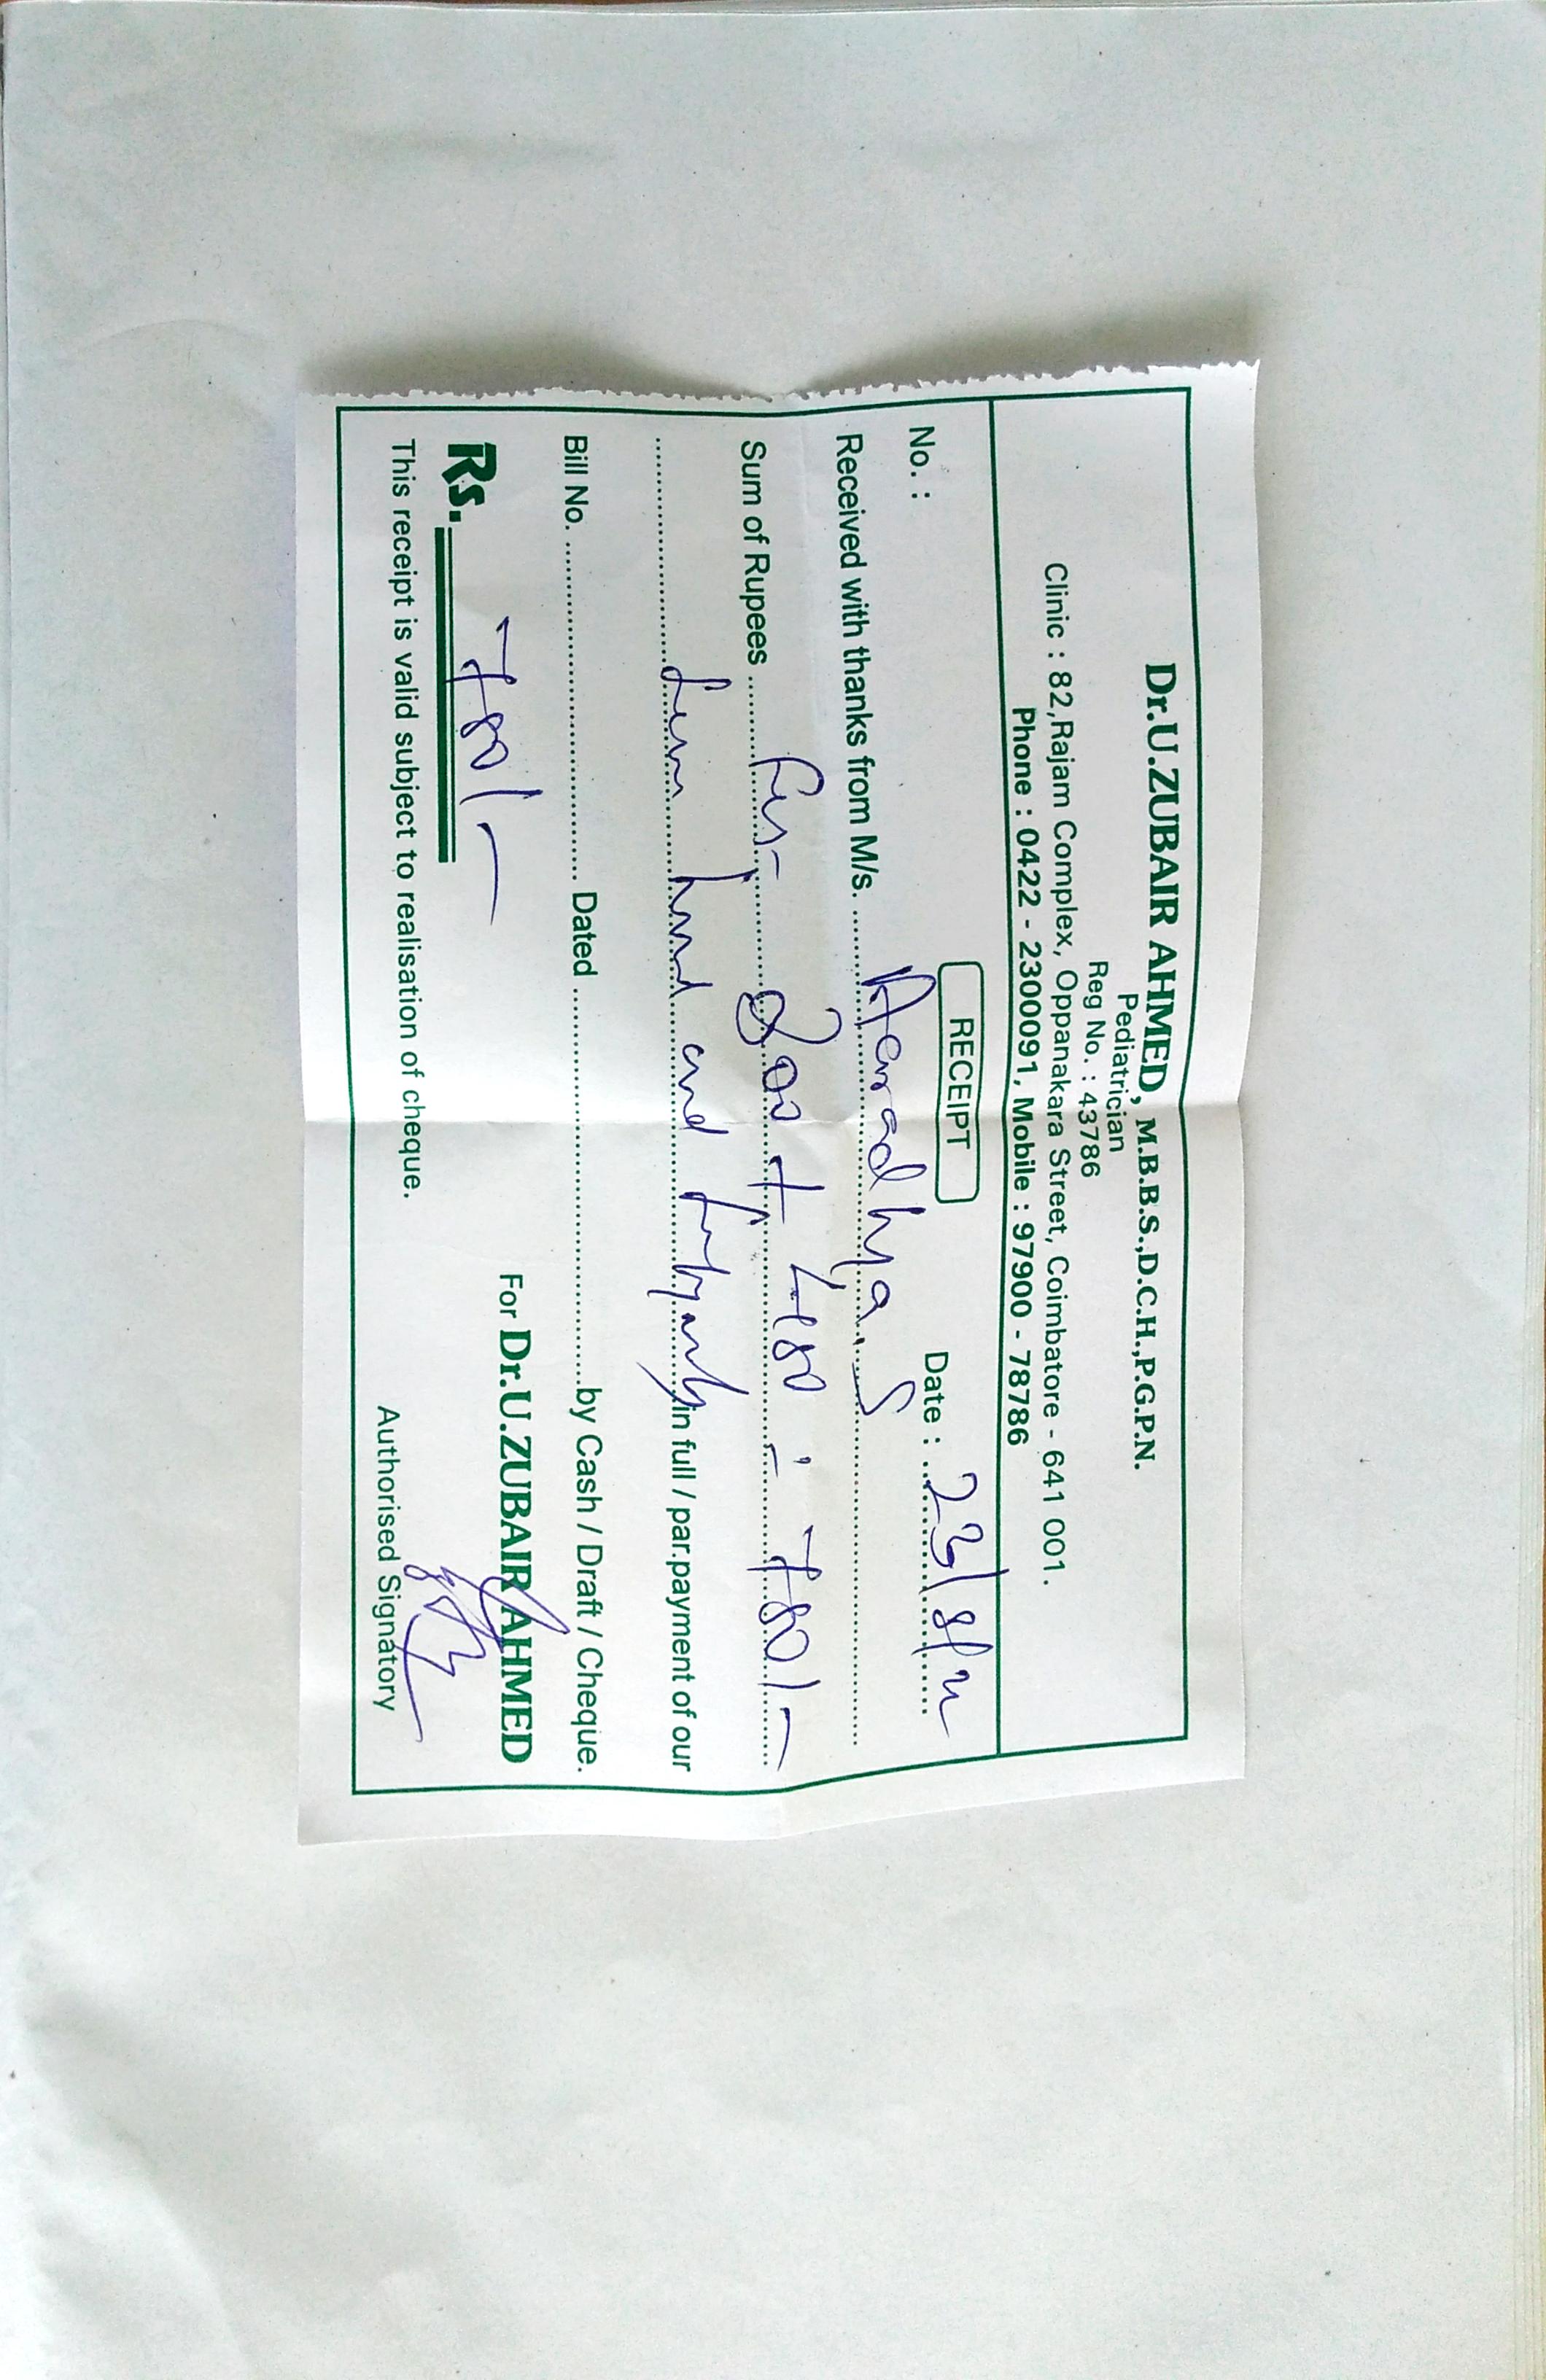 Dr.U.ZUBAIR AHMED, M.B.B.S.,D.C.H.,P.G.P.N.
Pediatrician
Reg No. : 43786
Clinic : 82,Rajam Complex, Oppanakara Street, Coimbatore - 641 001.
Phone : 0422 - 2300091, Mobile : 97900 - 78786
RECEIPT
No. : Date : 23/8/
Received with thanks from M/s. Aaradhya. S
Sum of Rupees 300 + 480 = 780/-
hund and in full / par.payment of our
Bill No. Dated by Cash / Draft / Cheque.
Rs. 780/-
For Dr.U.ZUBAIR AHMED
This receipt is valid subject to realisation of cheque.
Authorised Signatory